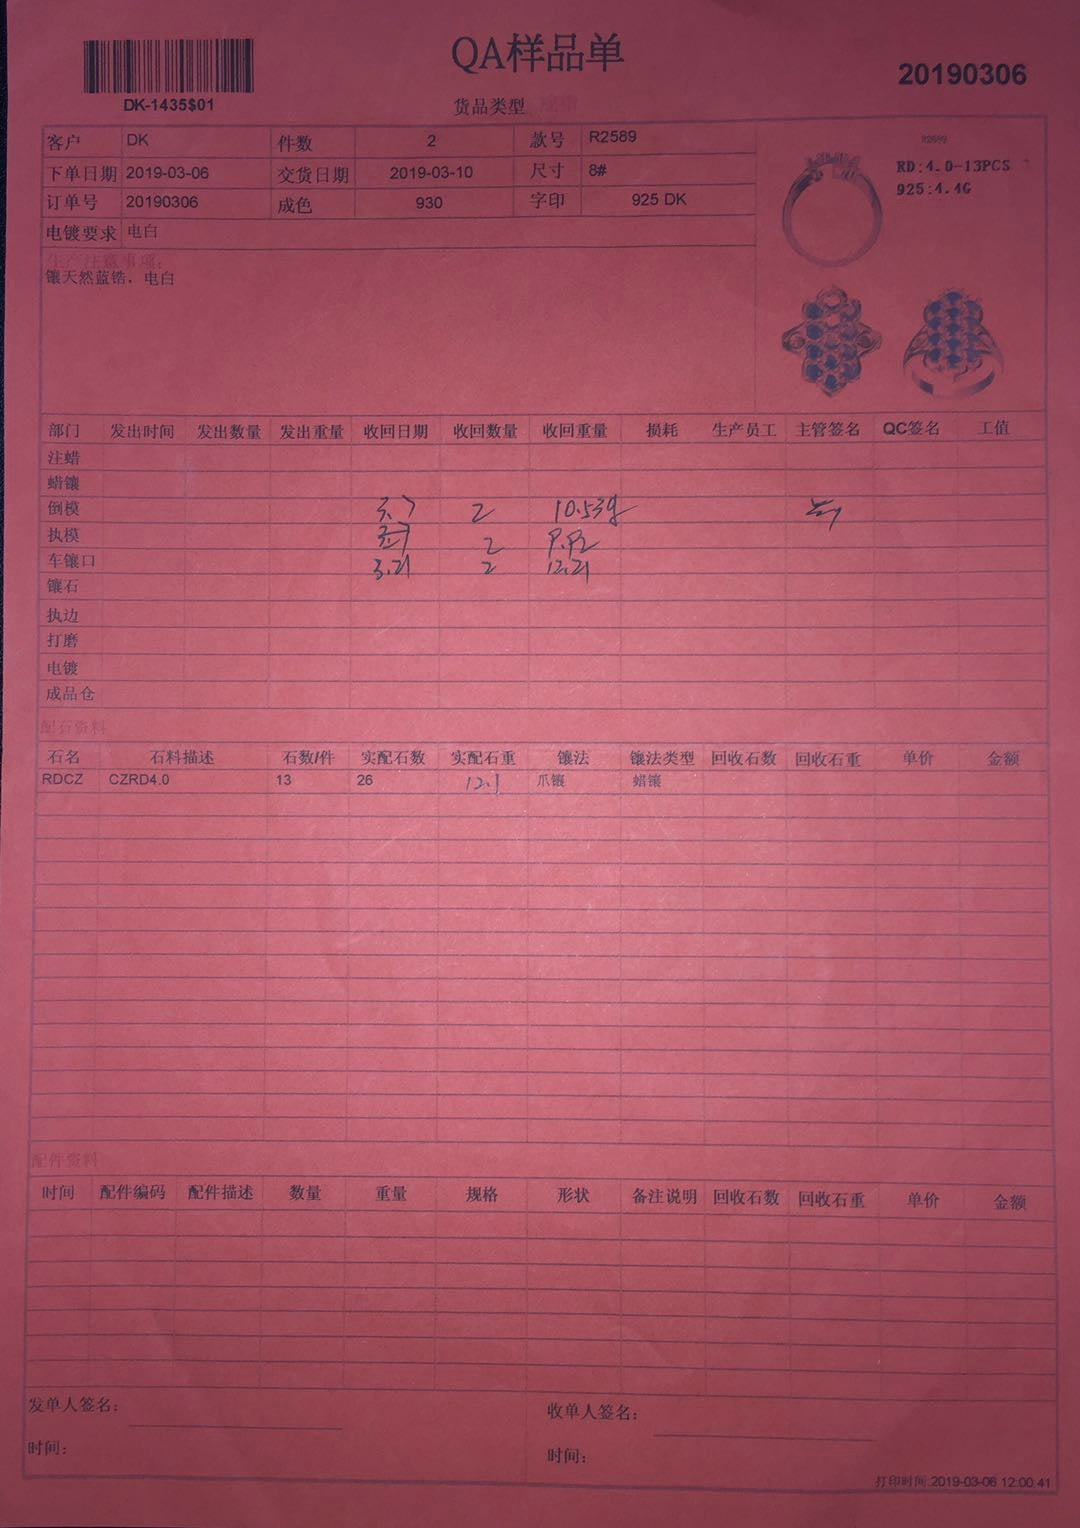 QA样品单
20190306
DK-1435$01
货品类型
客户 DK 件数 2 款号 R2589
下单日期 2019-03-06 交货日期 2019-03-10 尺寸 8#
订单号 20190306 成色 930 字印 925 DK
电镀要求 电白
生产注意事项:
镶天然蓝锆，电白
R2589
RD:4.0-13PCS
925:4.4G
部门 发出时间 发出数量 发出重量 收回日期 收回数量 收回重量 损耗 生产员工 主管签名 QC签名 工值
注蜡
蜡镶
倒模 3.7 2 10.53g
执模 2
车镶口 3.21 2 12.21
镶石
执边
打磨
电镀
成品仓
配石资料
石名 石料描述 石数/件 实配石数 实配石重 镶法 镶法类型 回收石数 回收石重 单价 金额
RDCZ CZRD4.0 13 26 12.1 爪镶 蜡镶
配件资料
时间 配件编码 配件描述 数量 重量 规格 形状 备注说明 回收石数 回收石重 单价 金额
发单人签名: 收单人签名:
时间: 时间:
打印时间:2019-03-06 12:00:41